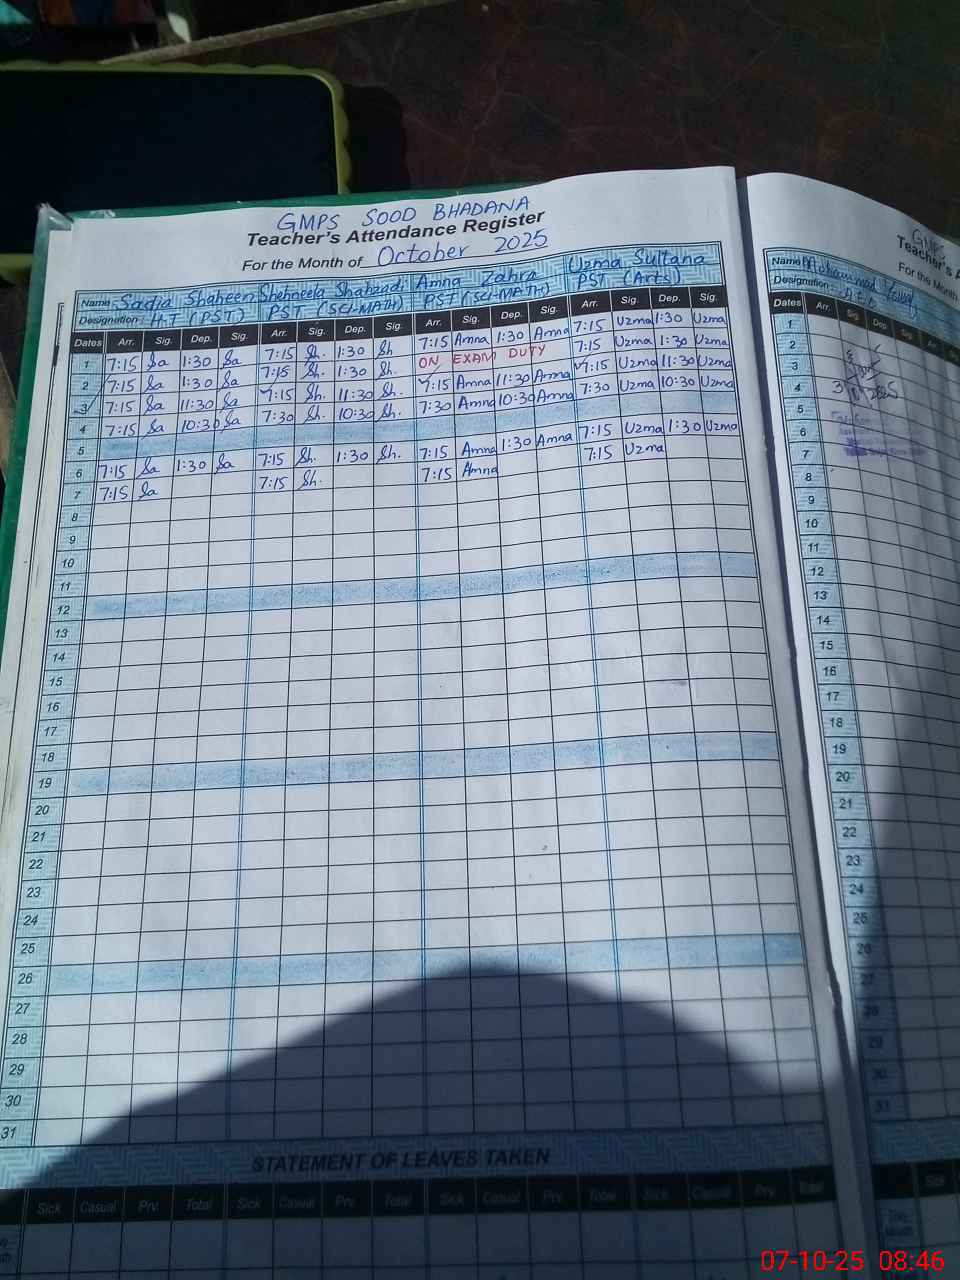 GMPS SOOD BHADANA
Teacher's Attendance Register
For the Month of October 2025
Name Sadia Shaheen Shehneela Shahzadi Amna Zahra Uzma Sultana
Designation H.T (PST) PST (SCI-MATH) PST (SCI-MATH) PST (Arts)
Dates Arr. Sig. Dep. Sig. Arr. Sig. Dep. Sig. Arr. Sig. Dep. Sig. Arr. Sig. Dep. Sig.
1 7:15 Sa 1:30 Sa 7:15 Sh. 1:30 Sh 7:15 Amna 1:30 Amna 7:15 Uzma 1:30 Uzma
2 7:15 Sa 1:30 Sa 7:15 Sh. 1:30 Sh. ON EXAM DUTY 7:15 Uzma 1:30 Uzma
3 7:15 Sa 11:30 Sa 7:15 Sh. 11:30 Sh. 7:15 Amna 11:30 Amna 7:15 Uzma 11:30 Uzma
4 7:15 Sa 10:30 Sa 7:30 Sh. 10:30 Sh. 7:30 Amna 10:30 Amna 7:30 Uzma 10:30 Uzma
5
6 7:15 Sa 1:30 Sa 7:15 Sh. 1:30 Sh. 7:15 Amna 1:30 Amna 7:15 Uzma 1:30 Uzma
7 7:15 Sa 7:15 Sh. 7:15 Amna 7:15 Uzma
8
9
10
11
12
13
14
15
16
17
18
19
20
21
22
23
24
25
26
27
28
29
30
31
STATEMENT OF LEAVES TAKEN
Sick Casual Prv. Total Sick Casual Prv. Total Sick Casual Prv. Total Sick Casual Prv. Total
GMPS
Teacher's A
For the Month
Name Muhammad
Designation
Dates Arr. Sig. Dep. Sig. Arr.
1
2
3
4
5
6
7
8
9
10
11
12
13
14
15
16
17
18
19
20
21
22
23
24
25
26
27
28
29
30
31
Sick
07-10-25 08:46